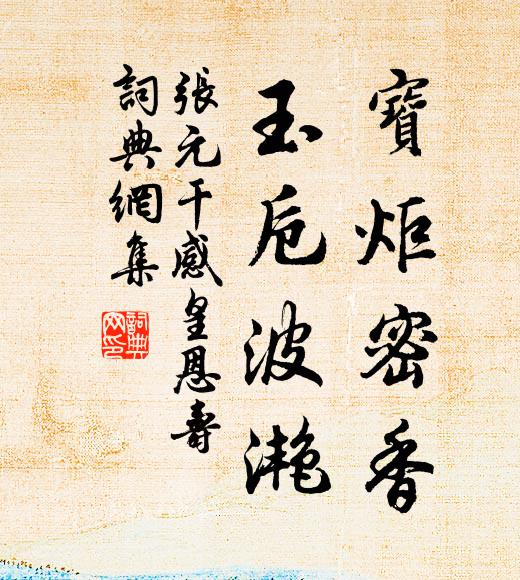 寶炬密香
玉卮波灔
張元干感皇恩壽
詞典網集
詞典網印